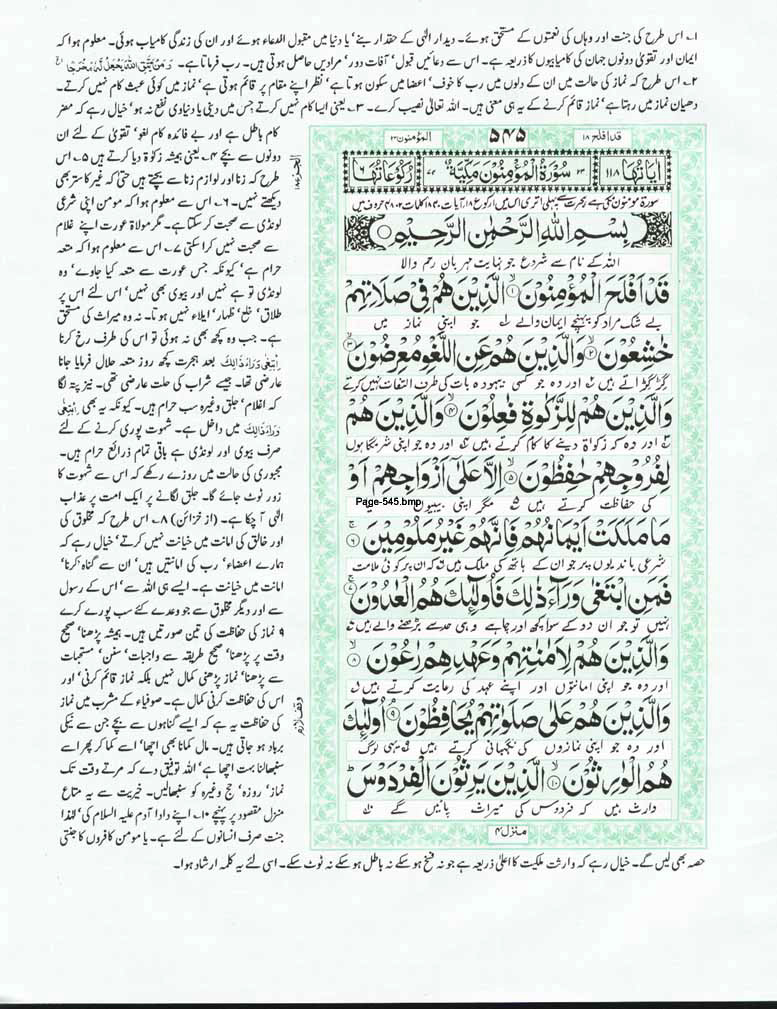 ۱۔ اس طرح کی جنت اور وہاں کی نعمتوں کے مستحق ہوئے۔ دیدار الٰہی کے حقدار بنے' یا دنیا میں مقبول الدعاء ہوئے اور ان کی زندگی کامیاب ہوئی۔ معلوم ہوا کہ
ایمان اور تقویٰ دونوں جہان کی کامیابیوں کا ذریعہ ہے۔ اس سے دعائیں قبول' آفات دور' مرادیں حاصل ہوتی ہیں۔ رب فرماتا ہے۔ وَمَنْ يَّتَّقِ اللهَ يَجْعَلْ لَّهٗ مَخْرَجًا
۲۔ اس طرح کہ نماز کی حالت میں ان کے دلوں میں رب کا خوف' اعضا میں سکون ہوتا ہے' نظر اپنے مقام پر قائم ہوتی ہے' نماز میں کوئی عبث کام نہیں کرتے۔
دھیان نماز میں رہتا ہے' نماز قائم کرنے کے یہ ہی معنی ہیں۔ اللہ تعالٰی نصیب کرے۔ ۳۔ یعنی ایسا کام نہیں کرتے جس میں دینی یا دنیاوی نفع نہ ہو' خیال رہے کہ مضر
کام باطل ہے اور بے فائدہ کام لغو' تقویٰ کے لئے ان
دونوں سے بچے ۴۔ یعنی ہمیشہ زکوٰۃ دیا کرتے ہیں ۵۔ اس
طرح کہ زنا اور لوازم زنا سے بچتے ہیں حتیٰ کہ غیر کا ستر بھی
دیکھتے نہیں۔ ۶۔ اس سے معلوم ہوا کہ مومن اپنی شرعی
لونڈی سے صحبت کر سکتا ہے۔ مگر مولاۃ عورت اپنے غلام
سے صحبت نہیں کرا سکتی ۷۔ اس سے معلوم ہوا کہ متعہ
حرام ہے' کیونکہ جس عورت سے متعہ کیا جاوے' وہ
لونڈی تو ہے نہیں اور بیوی بھی نہیں' اس لئے اس پر
طلاق' خلع' ظہار' ایلاء نہیں ہوتا۔ نہ وہ میراث کی مستحق
ہے۔ جب وہ کچھ بھی نہ ہوئی تو اس کی طرف رخ کرنا
ابْتَغٰى وَرَآءَ ذٰلِكَ بعد ہجرت کچھ روز متعہ حلال فرمایا جانا
عارضی تھا۔ جیسے شراب کی حلت عارضی تھی۔ نیز پتہ لگا
کہ اغلام' جلق وغیرہ سب حرام ہیں۔ کیونکہ یہ بھی ابْتَغٰى
وَرَآءَ ذٰلِكَ میں داخل ہے۔ شہوت پوری کرنے کے لئے
صرف بیوی اور لونڈی ہے باقی تمام ذرائع حرام ہیں۔
مجبوری کی حالت میں روزے رکھے کہ اس سے شہوت کا
زور ٹوٹ جائے گا۔ جلق لگانے پر ایک امت پر عذاب
الٰہی آ چکا ہے۔ (از خزائن) ۸۔ اس طرح کہ مخلوق کی
اور خالق کی امانت میں خیانت نہیں کرتے' خیال رہے کہ
ہمارے اعضاء' رب کی امانتیں ہیں' ان سے گناہ کرنا'
امانت میں خیانت ہے۔ ایسے ہی اللہ سے' اس کے رسول
سے اور دیگر مخلوق سے جو وعدے کئے سب پورے کرے
۹ نماز کی حفاظت کی تین صورتیں ہیں۔ ہمیشہ پڑھنا' صحیح
وقت پر پڑھنا' صحیح طریقہ سے واجبات' سنن' مستحبات
سے پڑھنا' نماز پڑھنی کمال نہیں بلکہ نماز قائم کرنی' اور
اس کی حفاظت کرنی کمال ہے۔ صوفیاء کے مشرب میں نماز
کی حفاظت یہ ہے کہ ایسے گناہوں سے بچے جن سے نیکی
برباد ہو جاتی ہیں۔ مال کمانا بھی اچھا' اسے کما کر پھر اسے
سنبھالنا بہت اچھا ہے' اللہ توفیق دے کہ مرتے وقت تک
نماز' روزہ' حج وغیرہ کو سنبھالیں۔ خیریت سے یہ متاع
منزل مقصود پر پہنچے ۱۰۔ اپنے دادا آدم علیہ السلام کی' لہٰذا
جنت صرف انسانوں کے لئے ہے۔ یا مومن کافروں کا جنتی
حصہ بھی لیں گے۔ خیال رہے کہ وارثت ملکیت کا اعلیٰ ذریعہ ہے جو نہ فسخ ہو سکے نہ باطل ہو سکے نہ ٹوٹ سکے۔ اسی لئے یہ کلمہ ارشاد ہوا۔
قد افلح ۱۸ ۵۴۵ المؤمنون ۲۳
اٰيَاتُهَا ۱۱۸ ۲۳ سُوْرَةُ الْمُؤْمِنُوْنَ مَكِّيَّةٌ ۷۴ رُكُوْعَاتُهَا ۶
بِسْمِ اللهِ الرَّحْمٰنِ الرَّحِيْمِ
اللہ کے نام سے شروع جو نہایت مہربان رحم والا
قَدْ اَفْلَحَ الْمُؤْمِنُوْنَ ۱ الَّذِيْنَ هُمْ فِيْ صَلَاتِهِمْ
بے شک مراد کو پہنچے ایمان والے جو اپنی نماز میں
خٰشِعُوْنَ ۲ وَالَّذِيْنَ هُمْ عَنِ اللَّغْوِ مُعْرِضُوْنَ ۳
گڑگڑاتے ہیں اور وہ جو کسی بیہودہ بات کی طرف التفات نہیں کرتے
وَالَّذِيْنَ هُمْ لِلزَّكٰوةِ فٰعِلُوْنَ ۴ وَالَّذِيْنَ هُمْ
اور وہ کہ زکوٰۃ دینے کا کام کرتے ہیں اور وہ جو اپنی شرمگاہوں
لِفُرُوْجِهِمْ حٰفِظُوْنَ ۵ اِلَّا عَلٰٓى اَزْوَاجِهِمْ اَوْ
کی حفاظت کرتے ہیں مگر اپنی بیبیوں
Page-545.bmp
مَا مَلَكَتْ اَيْمَانُهُمْ فَاِنَّهُمْ غَيْرُ مَلُوْمِيْنَ ۶
شرعی باندیوں پر جو ان کے ہاتھ کی ملک ہیں کہ ان پر کوئی ملامت
فَمَنِ ابْتَغٰى وَرَآءَ ذٰلِكَ فَاُولٰٓئِكَ هُمُ الْعٰدُوْنَ ۷
نہیں تو جو ان دو کے سوا کچھ اور چاہے وہی حد سے بڑھنے والے ہیں
وَالَّذِيْنَ هُمْ لِاَمٰنٰتِهِمْ وَعَهْدِهِمْ رٰعُوْنَ ۸
اور وہ جو اپنی امانتوں اور اپنے عہد کی رعایت کرتے ہیں
وَالَّذِيْنَ هُمْ عَلٰى صَلَوٰتِهِمْ يُحَافِظُوْنَ ۹ اُولٰٓئِكَ
اور وہ جو اپنی نمازوں کی نگہبانی کرتے ہیں یہی لوگ
هُمُ الْوٰرِثُوْنَ ۱۰ الَّذِيْنَ يَرِثُوْنَ الْفِرْدَوْسَ
وارث ہیں کہ فردوس کی میراث پائیں گے
منزل ۴